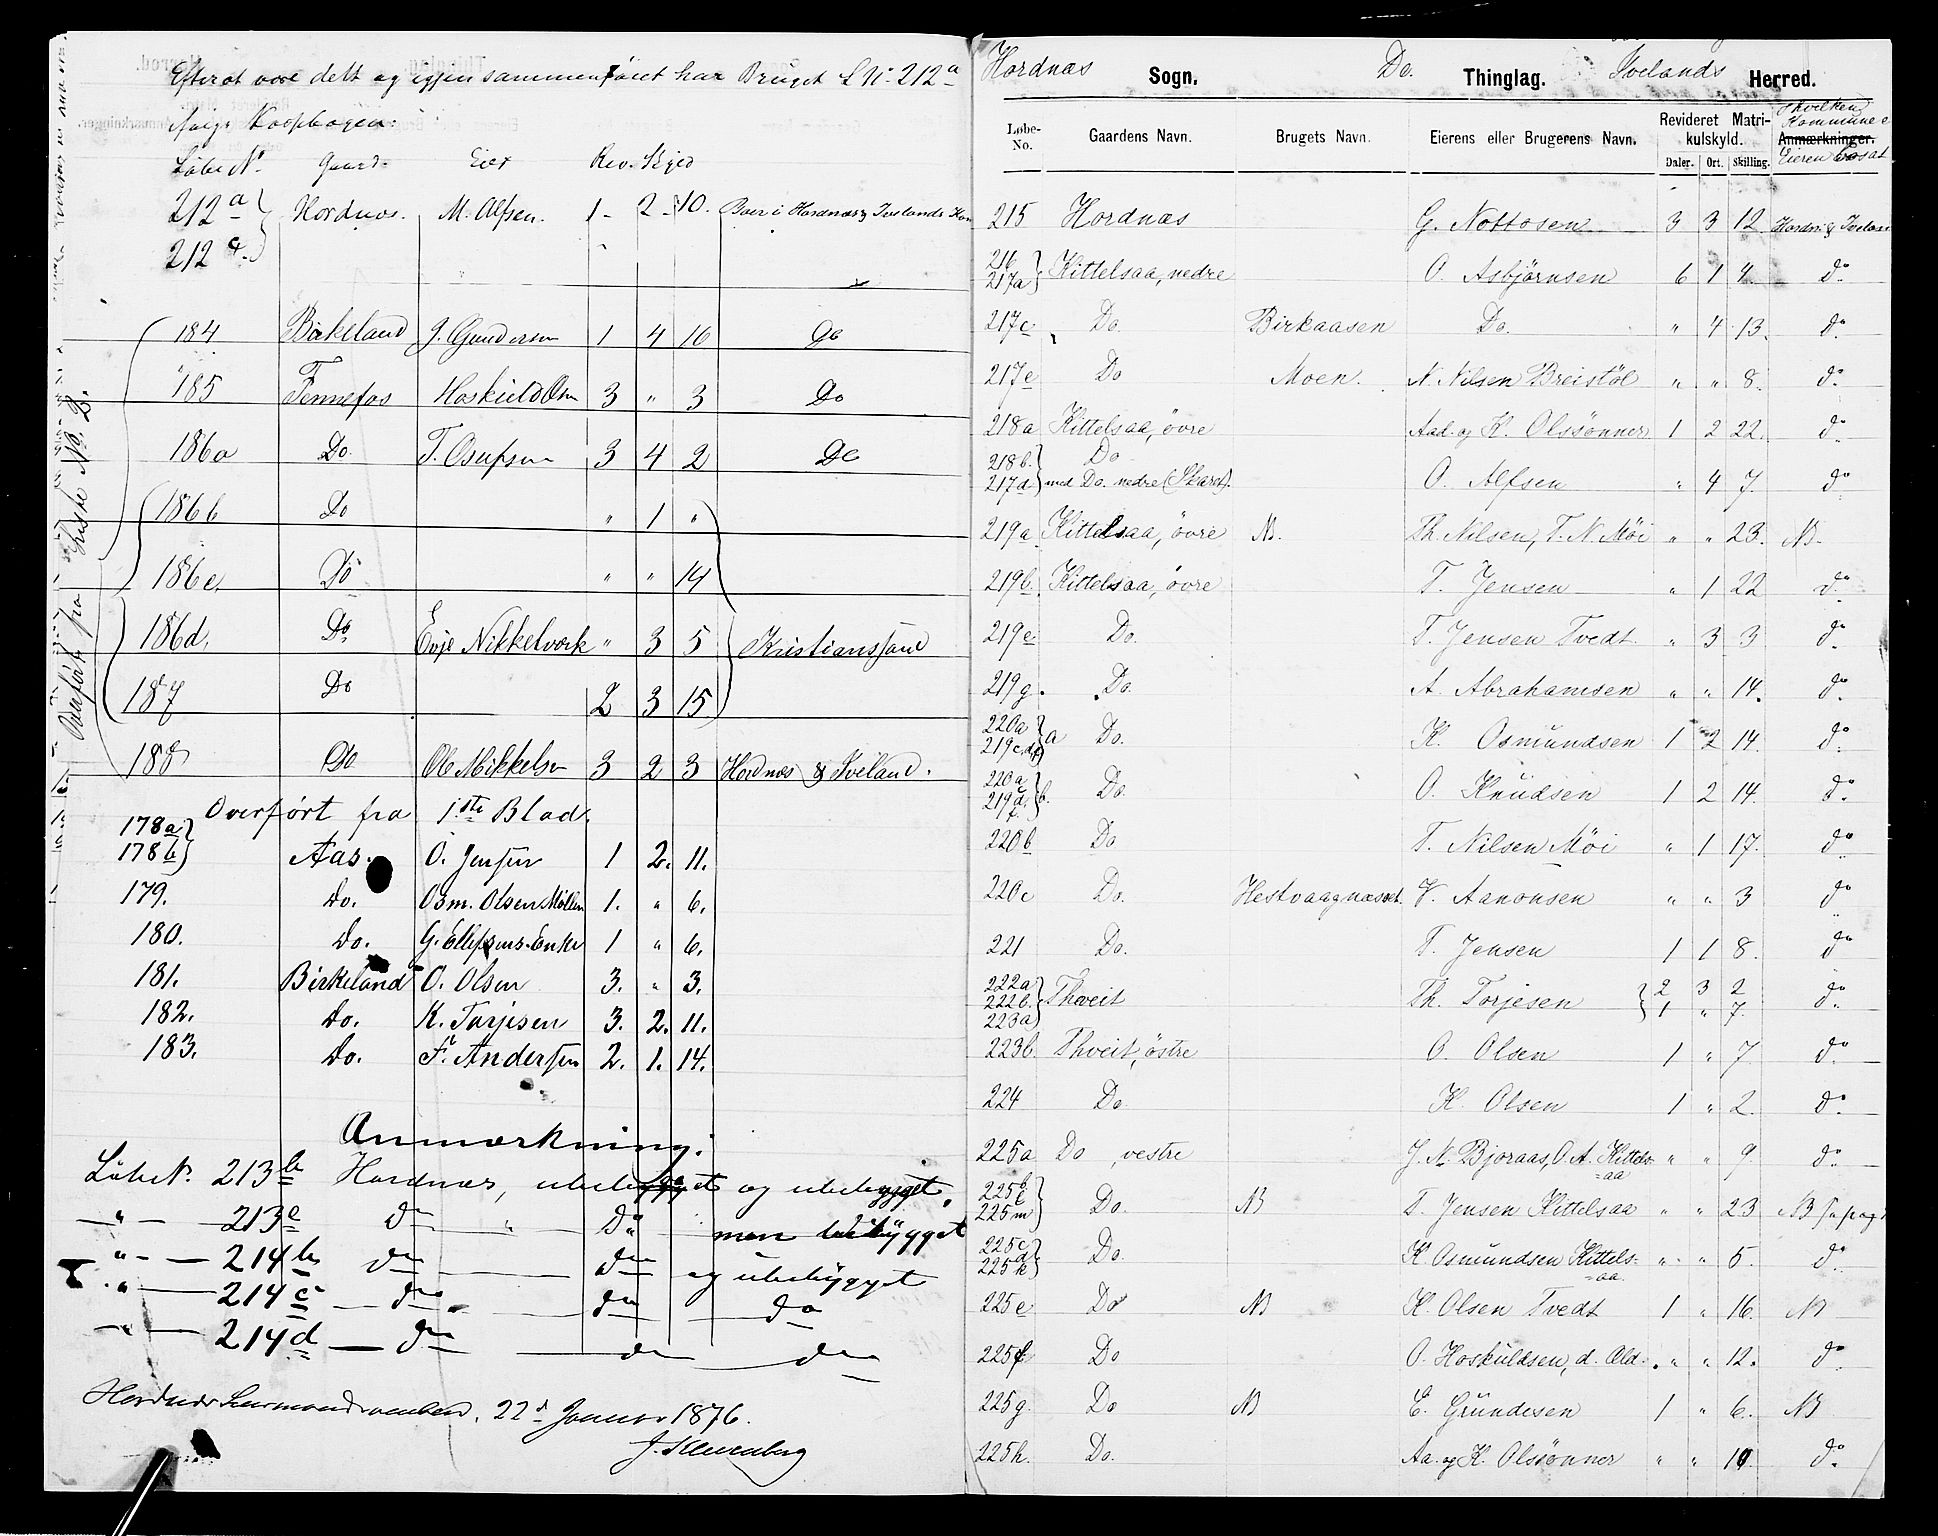 Efterat være delt og igjen sammenføiet har Bruget L N: 212a
følge Koopbogen:
Løbe No. Gaard. Eier Rev. Skyld
212a } Hordnæs. M. Alfsen. 1 - 2 - 10. Boer i Hordnæs & Ivelands
212c }
184 Birkeland J. Gundersen 1 4 16 Do
185 Fennefos Hoskuld Osm 3 " 3 Do
186a Do. T. Osufsen 3 4 2 Do
186b Do " 1 "
186c. Do " " 14
186d. Do. Evje Nikkelværk " 3 5 Kristianssand
187 Do 2 3 15
188 Do Ole Mikkelsen 3 2 3 Hordnæs & Iveland.
Overført fra Liste No. 2.
Overført fra 1ste Blad.
178a }
178b } Aas. O. Jensen 1 2. 11.
179. Do. Osm. Olsen Mollen 1. " 6.
180. Do. G. Ellefsens Enke 1 " 6.
181. Birkeland O. Olsen 3. " 3.
182. Do. K. Tarjesen 3. 2. 11.
183. Do. F. Andersen 2. 1. 14.
Anmærkning.
Løbe N. 213b Hordnæs, og ubebygget.
" 213c do " Do men bebygget
" 214b do do og ubebygget
" 214c do do do
" 214d do do do
Hordnæs 22d Januar 1876.
Hordnæs Sogn. Do. Thinglag. Ivelands Herred.
Løbe-No. Gaardens Navn. Brugets Navn. Eierens eller Brugerens Navn. Revideret Matrikulskyld. Daler. Ort. Skilling. Anmærkninger. I hvilken Kommune er Eieren bosat
215 Hordnæs G. Nottosen 3 3 12 Hordn. & Iveland
216 }
217a } Kittelsaa, nedre O. Asbjørnsen 6 1 4. do
217c Do. Birkaasen Do. " 4 13. do
217e Do Moen. N. Nilsen Breistøl " " 8. do
218a Kittelsaa, øvre Aad. og K. Olssønner 1 2 22. do
218b. } Do
217d } med Do. nedre (Skaret). O. Alfsen " 4 7. do
219a Kittelsaa, øvre NB. Th. Nilsen, T. N. Møi " " 23. NB.
219b. Kittelsaa, øvre T. Jensen " 1 22 do
219e Do. T. Jensen Tvedt. " 3 3 do
219g. Do. A. Abrahamsen " " 14. do
220a }
219c,d,f } a Do. K. Osmundsen 1 2 14. do
220a }
219d. f. } b. Do. O. Knudsen 1 2 14. do
220b Do T. Nilsen Møi " 1 17. do
220c Do. Hestvaagnæsset. V. Aanonsen " " 3 do
221 Do. T. Jensen 1 1 8. do
222a }
222b. } Thveit Th. Torjesen { 2 3 2 do
223a } { 1 " 7.
223b. Thveit, østre O. Olsen 1 " 7 do
224 Do. K. Olsen 1 " 2. do
225a Do , vestre J. N. Bjoraas, O. A. Kittels-
=aa " " 9. do
225b }
225m } Do. NB T. Jensen Kittelsaa " " 23 NB
225c }
225k } Do. K. Osmundsen Kittels=
=aa. " " 5. do
225e Do NB K. Olsen Tvedt 1 " 16. NB
225f. Do O. Hoskuldsen, d. Æld. " " 12. do
225g. Do NB E. Grundesen 1 " 6. NB
225h. Do. Aa. og K. Olssønner " " 10 do